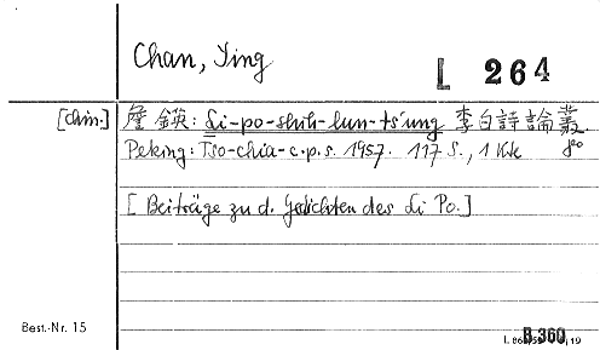 Chan, Ying
L 264
[chin.] 詹 鍈: Li-po-shih-lun-ts'ung 李白詩論叢.
Peking: Tso-chia-c.p.s. 1957. 117 S., 1 Kte 8°
[Beiträge zu d. Gedichten des Li Po.]
Best.-Nr. 15
B.360